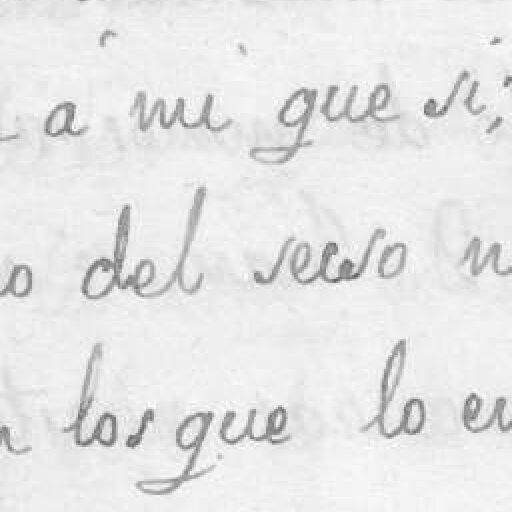 a mi que si;
o del sexso
los que lo en